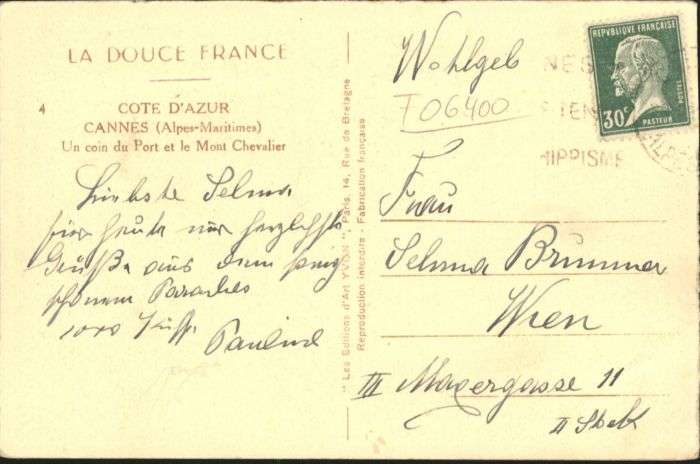 LA DOUCE FRANCE
4
COTE D'AZUR
CANNES (Alpes-Maritimes)
Un coin du Port et le Mont Chevalier
Liebste Selma
für heute nur herzlichste
Grüße aus dem
schönen Paradies
1000 Küsse
Pauline
"Les Editions d'Art YVON" Paris, 14, Rue de Bretagne
Reproduction interdite - Fabrication française
Wohlgeb
T 06400
Frau
Selma Brunner
Wien
III Maxergasse 11
II Stock
REPUBLIQUE FRANÇAISE
POSTES
30c
PASTEUR
NES
HIPPISME